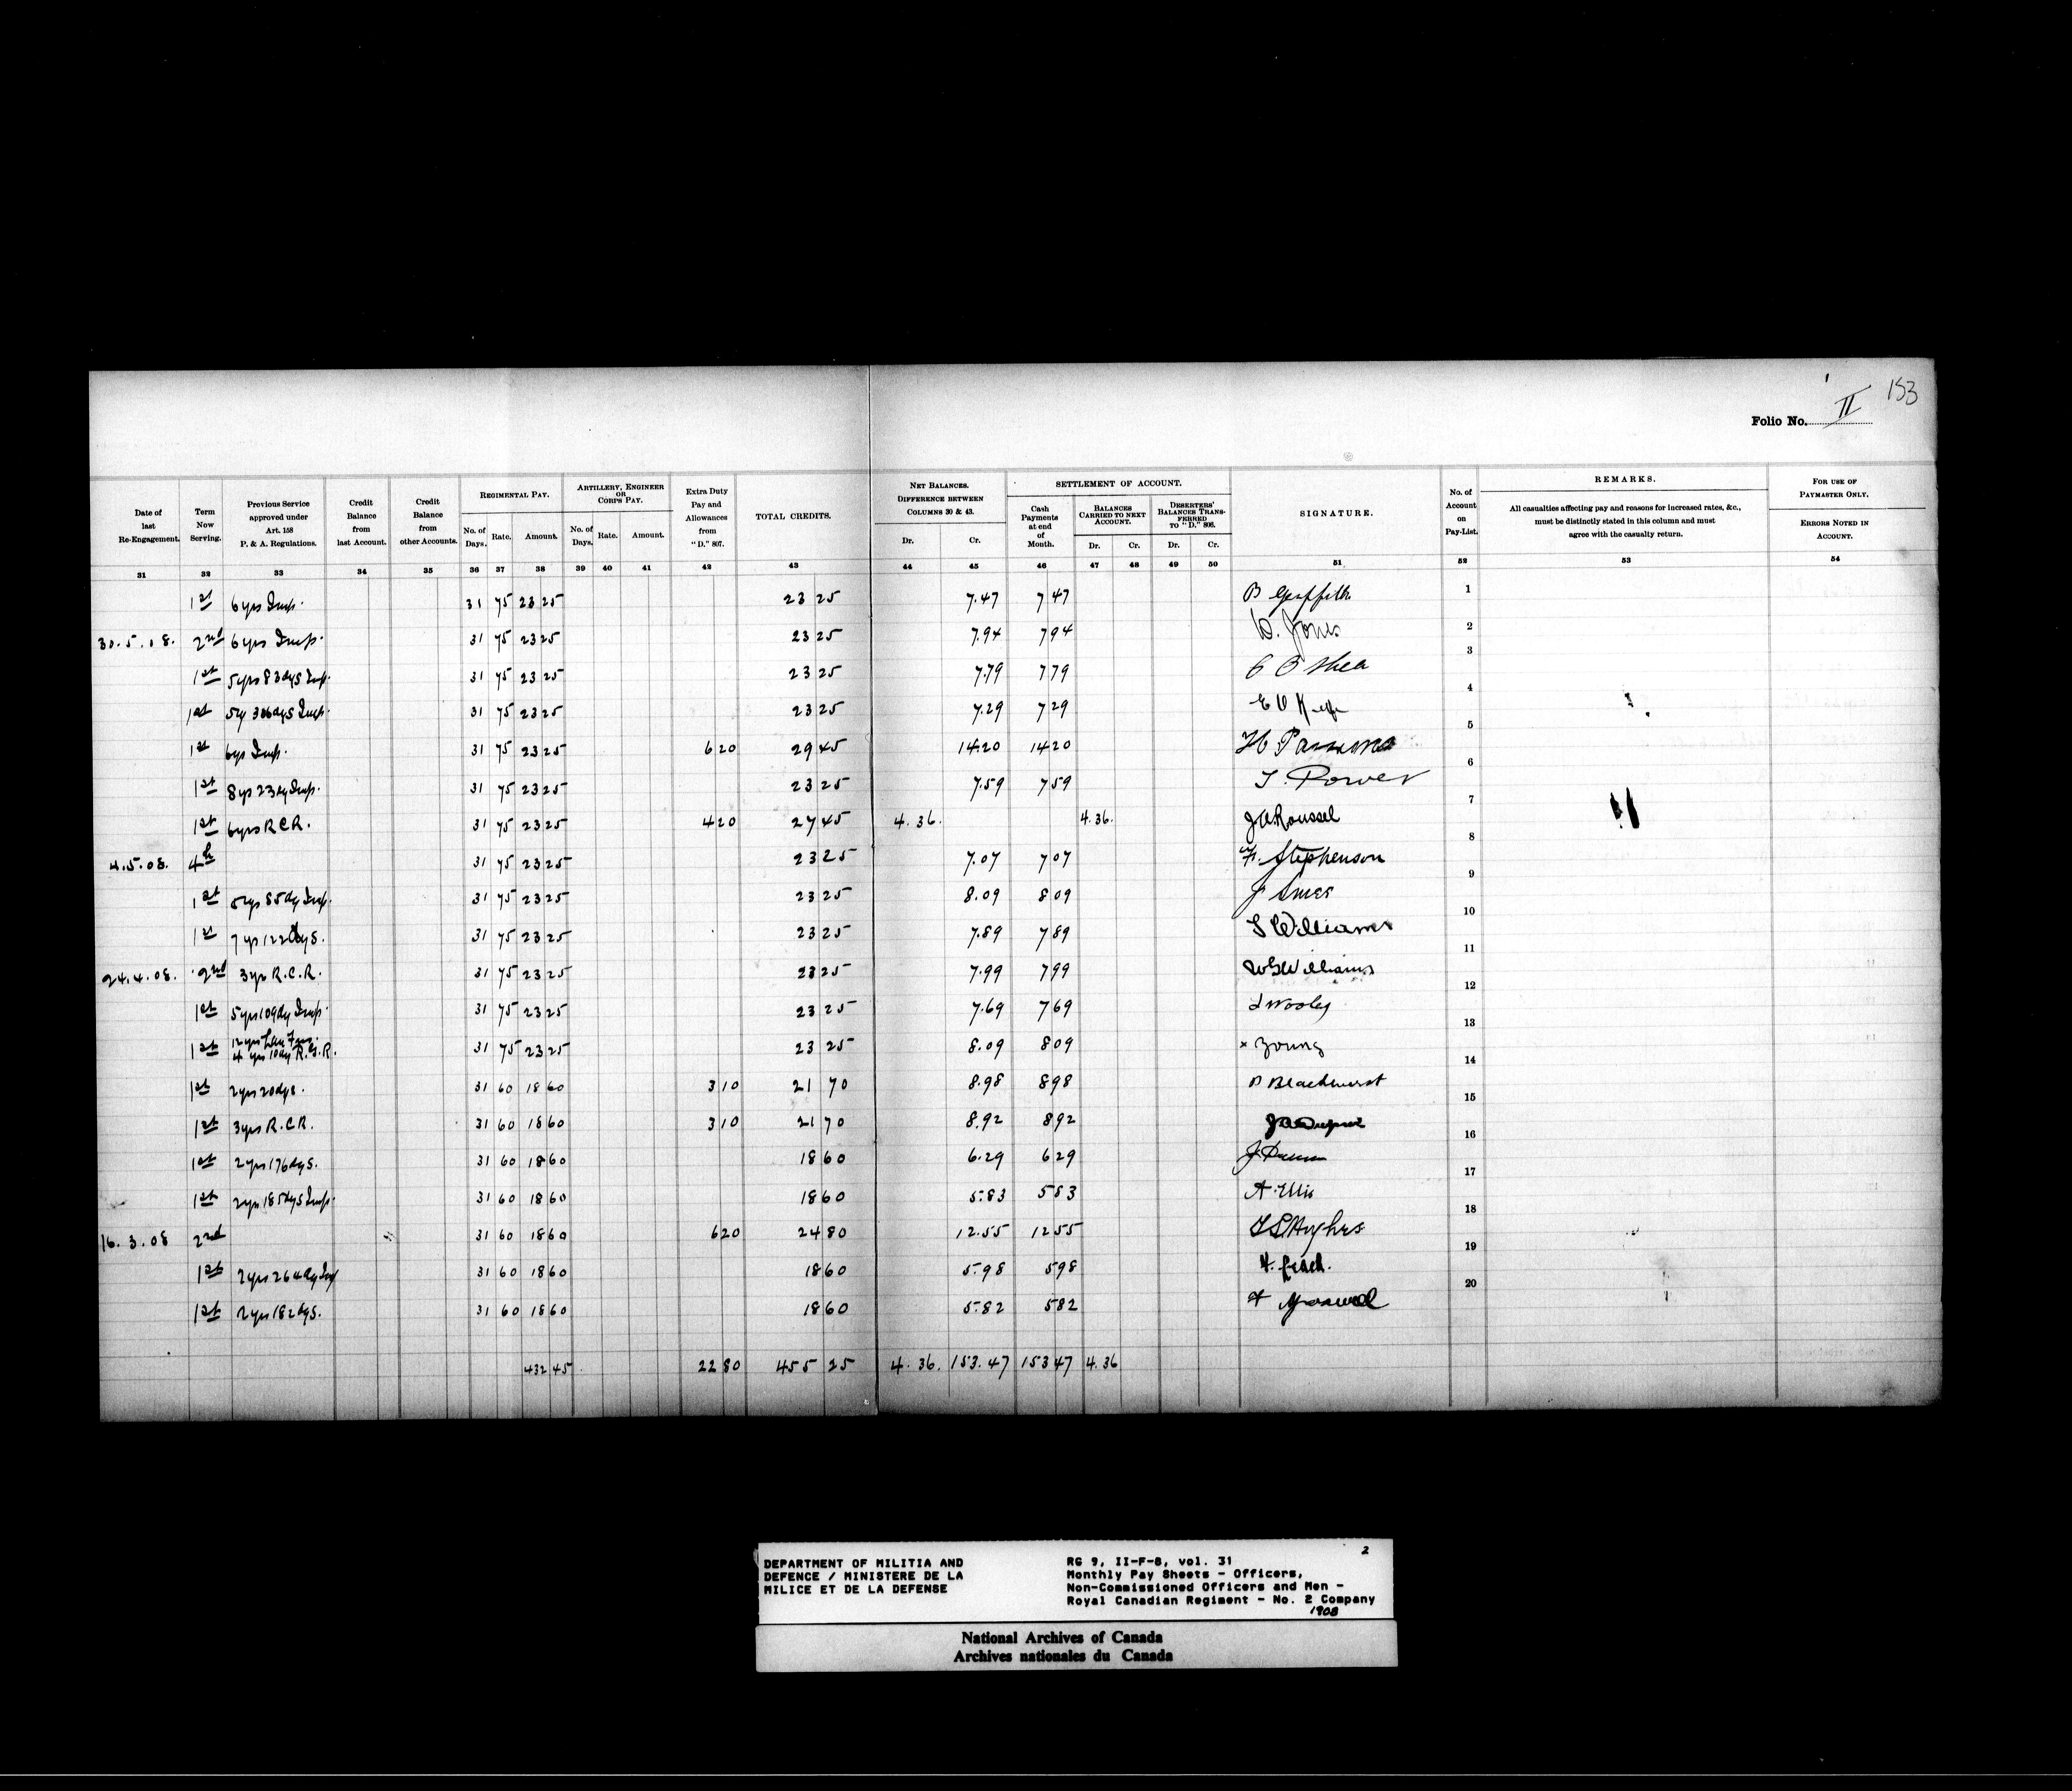 153
Folio No. II
Date of last Re-Engagement. Term Now Serving. Previous Service approved under Art. 158 P. & A. Regulations. Credit Balance from last Account. Credit Balance from other Accounts. REGIMENTAL PAY. No. of Days. Rate. Amount. ARTILLERY, ENGINEER OR CORPS PAY. No. of Days. Rate. Amount. Extra Duty Pay and Allowances from "D." 807. TOTAL CREDITS. NET BALANCES. DIFFERENCE BETWEEN COLUMNS 30 & 43. Dr. Cr. SETTLEMENT OF ACCOUNT. Cash Payments at end of Month. BALANCES CARRIED TO NEXT ACCOUNT. Dr. Cr. DESERTERS' BALANCES TRANSFERRED TO "D." 806. Dr. Cr. SIGNATURE. No. of Account on Pay-List. REMARKS. All casualties affecting pay and reasons for increased rates, &c., must be distinctly stated in this column and must agree with the casualty return. FOR USE OF PAYMASTER ONLY. ERRORS NOTED IN ACCOUNT.
31 32 33 34 35 36 37 38 39 40 41 42 43 44 45 46 47 48 49 50 51 52 53 54
1st 6 yrs Imp. 31 75 23 25 23 25 7.47 7 47 B Griffith 1
30.5.08. 2nd 6 yrs Imp. 31 75 23 25 23 25 7.94 7 94 Jones 2
1st 5 yrs 83 dys Imp. 31 75 23 25 23 25 7.79 7 79 O Shea 3
1st 5 y 306 dys Imp. 31 75 23 25 23 25 7.29 7 29 E O Keefe 4
1st 6 yrs Imp. 31 75 23 25 6 20 29 45 14.20 14 20 H Parsons 5
1st 8 yrs 23 dy Imp. 31 75 23 25 23 25 7.59 7 59 T. Power 6
1st 6 yrs R.C.R. 31 75 23 25 4 20 27 45 4.36. 4.36. J A Roussel 7
4.5.08. 4th 31 75 23 25 23 25 7.07 7 07 Stephenson 8
1st 5 yrs 85 dy Imp. 31 75 23 25 23 25 8.09 8 09 J 9
1st 7 yrs 122 dys. 31 75 23 25 23 25 7.89 7 89 S Williams 10
24.4.08. 2nd 3 yrs R.C.R. 31 75 23 25 23 25 7.99 7 99 W G Williams 11
1st 5 yrs 109 dy Imp. 31 75 23 25 23 25 7.69 7 69 Wooley 12
1st 12 yrs 4 yrs 10 dy R.G.R. 31 75 23 25 23 25 8.09 8 09 Young 13
1st 2 yrs 20 dys. 31 60 18 60 3 10 21 70 8.98 8 98 Blackhurst 14
1st 3 yrs R.C.R. 31 60 18 60 3 10 21 70 8.92 8 92 15
1st 2 yrs 176 dys. 31 60 18 60 18 60 6.29 6 29 J 16
1st 2 yrs 185 dys Imp. 31 60 18 60 18 60 5.83 5 83 A Ellis 17
16.3.08 2nd 31 60 18 60 6 20 24 80 12.55 12 55 Hughes 18
1st 2 yrs 264 dy Imp 31 60 18 60 18 60 5.98 5 98 19
1st 2 yrs 182 dys. 31 60 18 60 18 60 5.82 5 82 20
432 45 22 80 455 25 4.36. 153.47 153 47 4.36
DEPARTMENT OF MILITIA AND
DEFENCE / MINISTERE DE LA
MILICE ET DE LA DEFENSE
2
RG 9, II-F-8, vol. 31
Monthly Pay Sheets - Officers,
Non-Commissioned Officers and Men -
Royal Canadian Regiment - No. 2 Company
1908
National Archives of Canada
Archives nationales du Canada